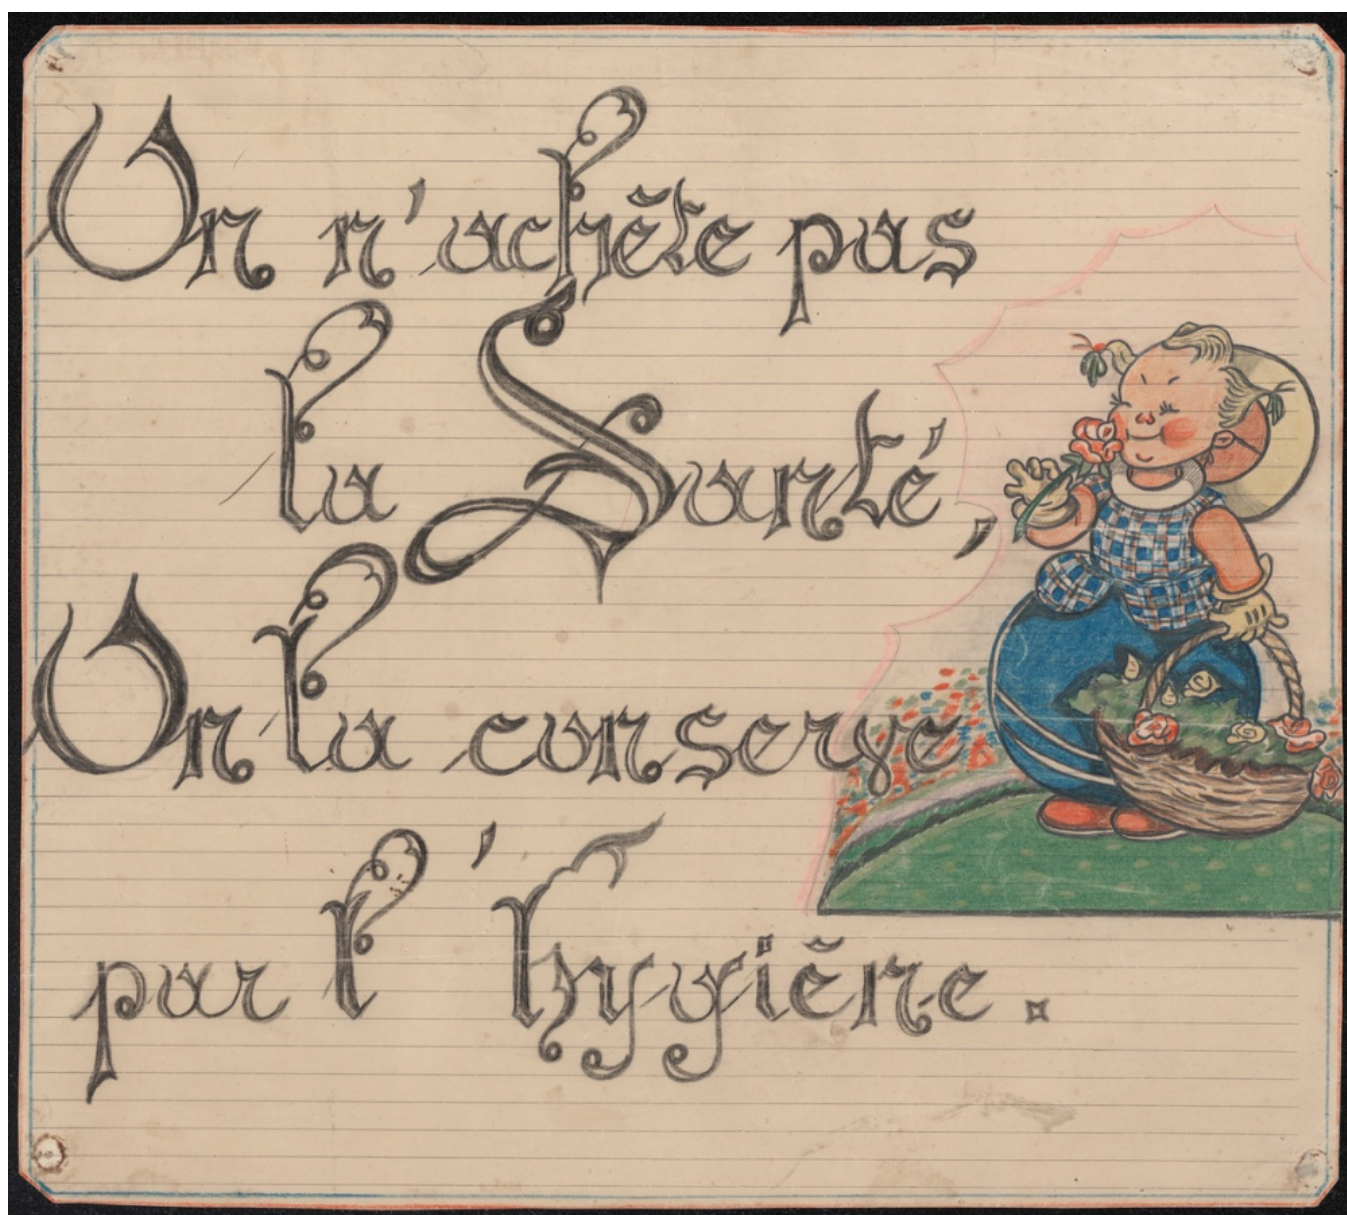 On n'achète pas
la Santé,
On la conserve
par l'hygiène.